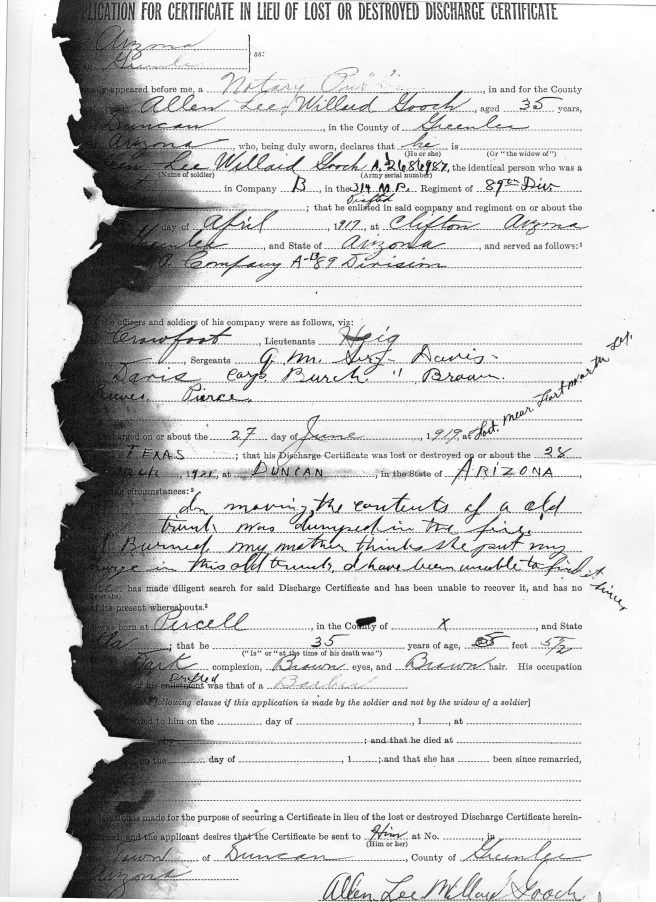 PLICATION FOR CERTIFICATE IN LIEU OF LOST OR DESTROYED DISCHARGE CERTIFICATE
Arizona
ss:
appeared before me, a Notary Public, in and for the County
Allen Lee Willard Gooch, aged 35 years,
Duncan, in the County of Greenlee
Arizona, who, being duly sworn, declares that he is
(He or she) (Or "the widow of")
Lee Willard Gooch A. 2686987, the identical person who was a
(Name of soldier) (Army serial number)
in Company B, in the 314 M.P. Regiment of 89th Div
Drafted
; that he enlisted in said company and regiment on or about the
day of April, 1917, at Clifton Arizona
Greenlee, and State of Arizona, and served as follows:¹
Company A-B 89 Division
the officers and soldiers of his company were as follows, viz:
Crowfoot, Lieutenants Heig
, Sergeants G. M. Sergt Davis
Davis Corp Burch " Brown
Pierce.
charged on or about the 27 day of June, 1919, at Fort. near Fort Worth
TEXAS; that his Discharge Certificate was lost or destroyed on or about the 28
, 1921, at DUNCAN, in the State of ARIZONA,
circumstances:²
In moving the contents of a old
trunk was dumped in the fire
Burned my mother thinks she put my
in this old trunk, I have been unable to find it since,
has made diligent search for said Discharge Certificate and has been unable to recover it, and has no
of its present whereabouts.²
was born at Purcell, in the County of x, and State
; that he 35 years of age, 5 feet 5 1/2
("Is" or "at the time of his death was")
Dark complexion, Brown eyes, and Brown hair. His occupation
Drafted
of his enlistment was that of a Barber
the following clause if this application is made by the soldier and not by the widow of a soldier]
to him on the day of , 1 , at
by ; and that he died at
on the day of , 1 ; and that she has been since remarried,
is made for the purpose of securing a Certificate in lieu of the lost or destroyed Discharge Certificate herein-
and the applicant desires that the Certificate be sent to Him at No. , in
(Him or her)
Town of Duncan, County of Greenlee
Arizona
Allen Lee Willard Gooch